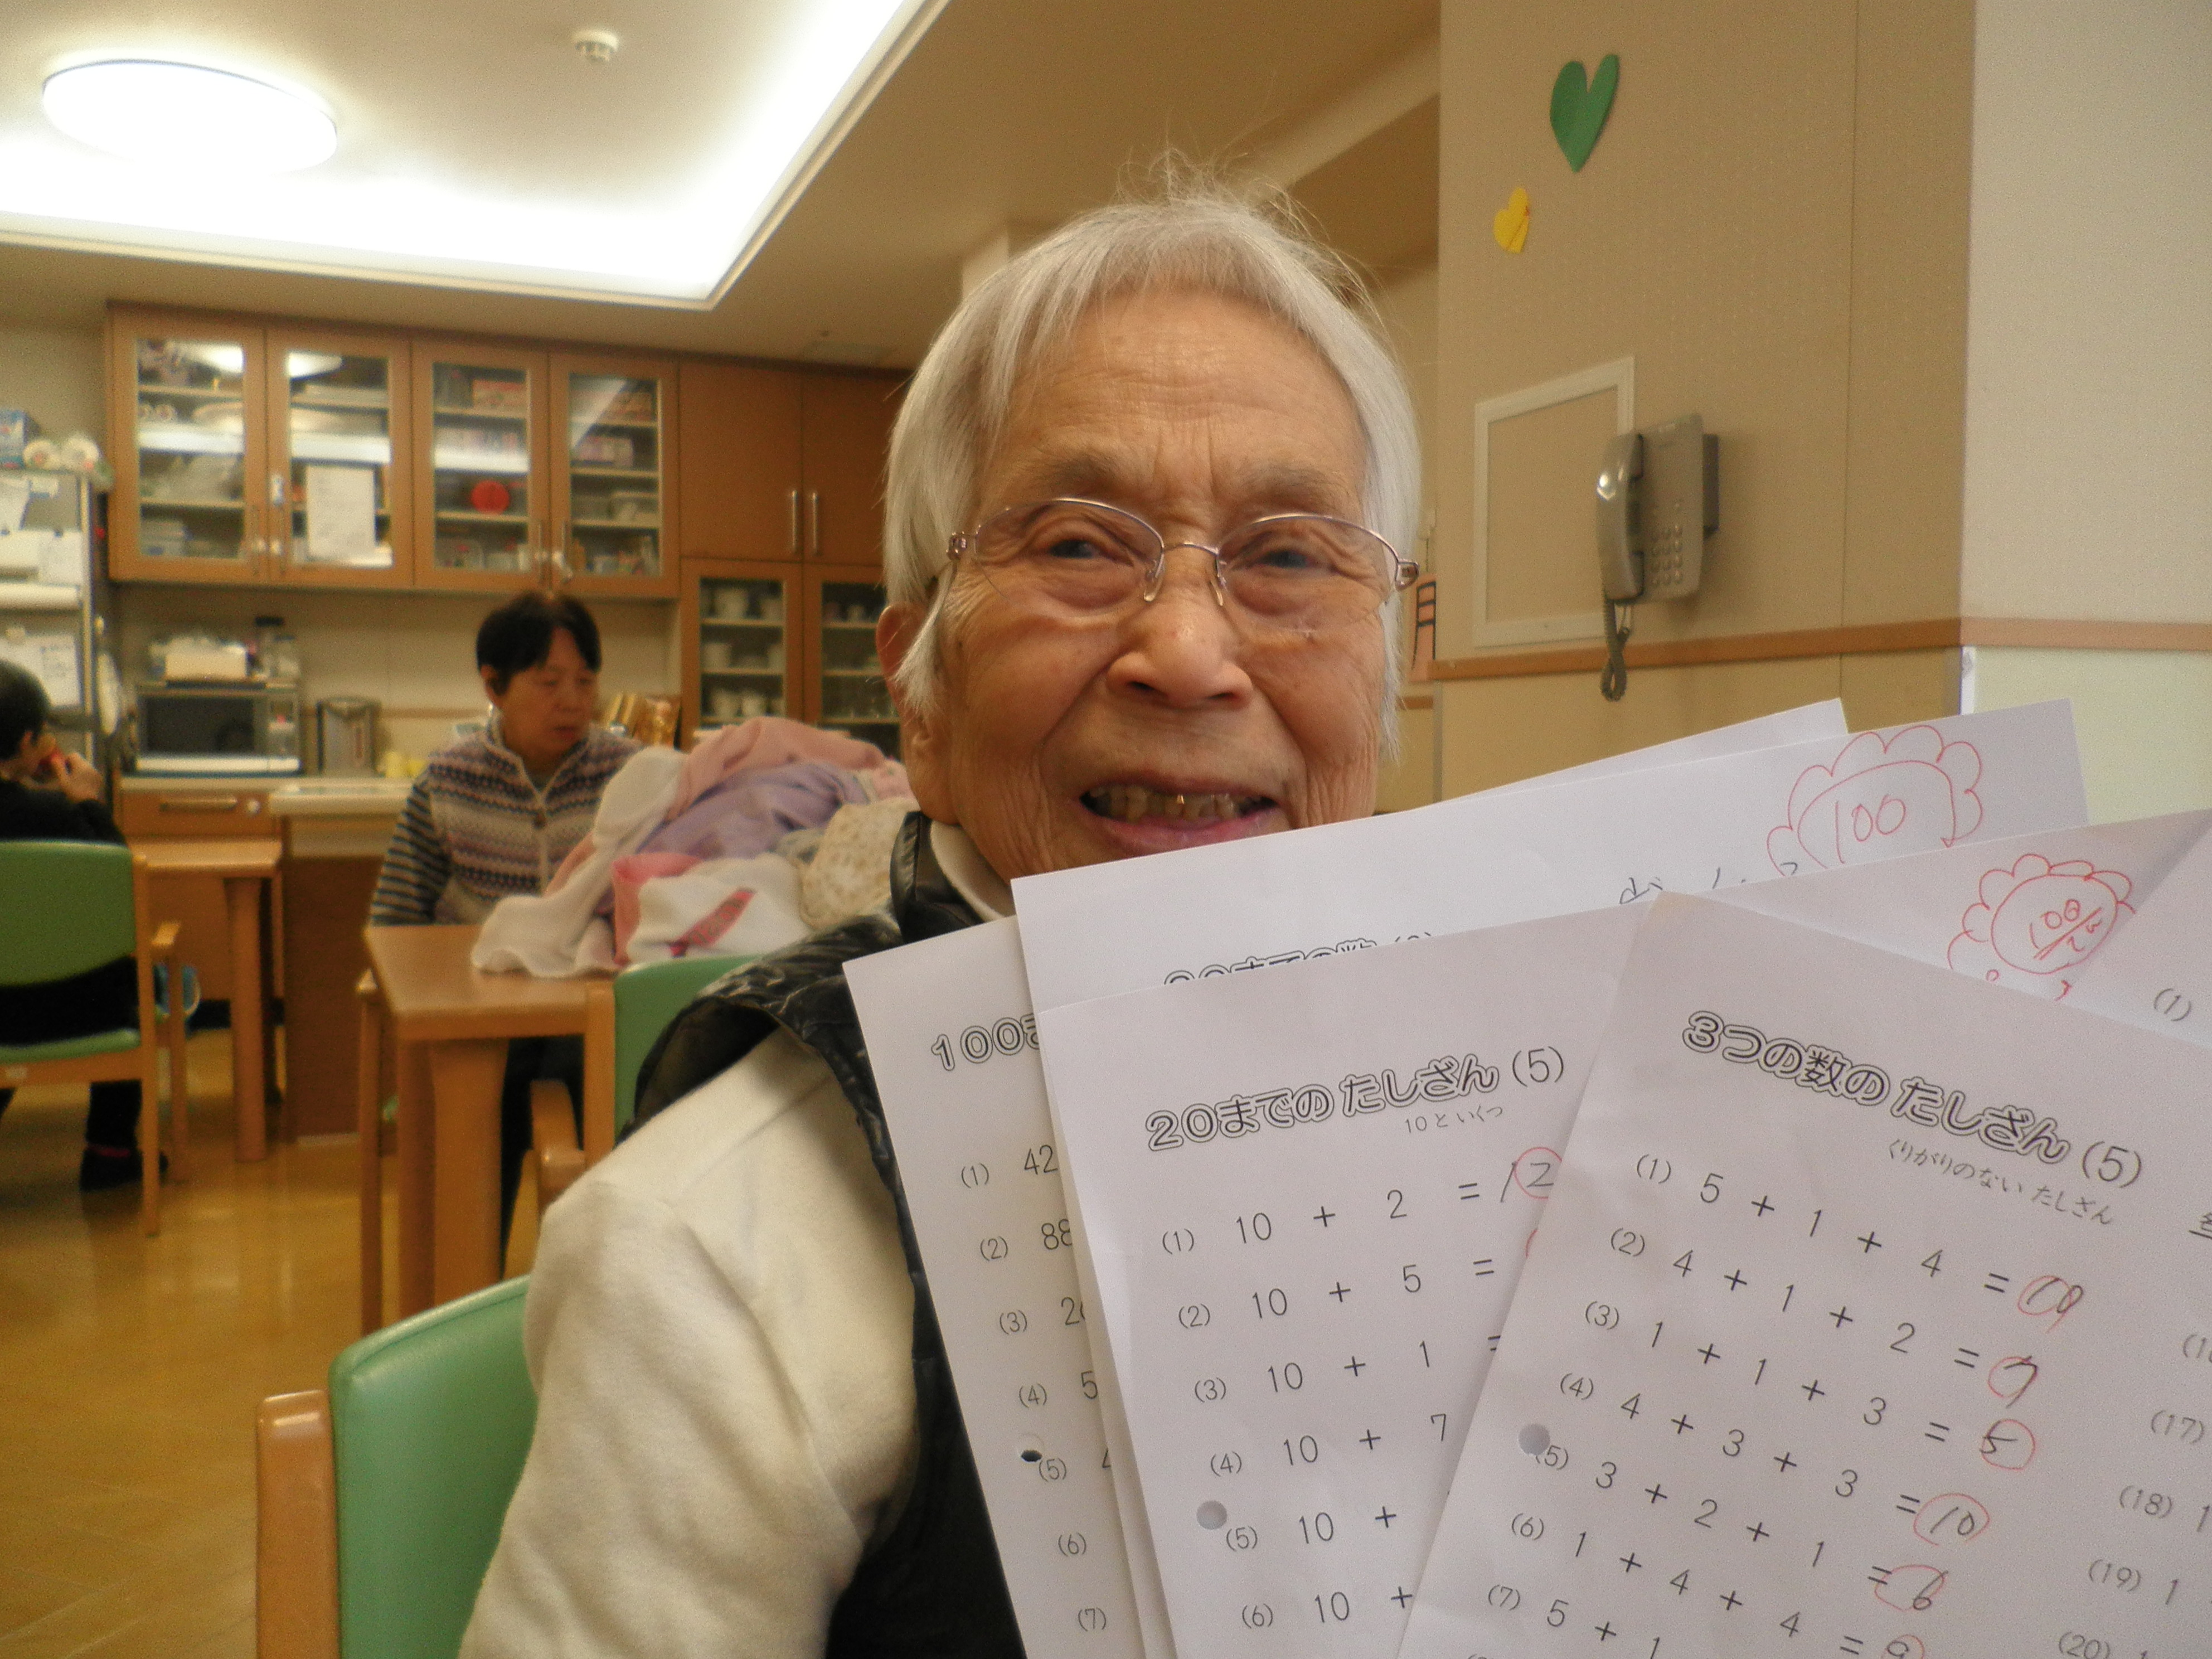 100
100
100ま
(1) 42
(2) 88
(3) 2
(4) 5
(5) 4
(6)
(7)
20までの たしざん (5)
10といくつ
(1) 10 + 2 = 12
(2) 10 + 5 =
(3) 10 + 1 =
(4) 10 + 7
(5) 10 +
(6) 10 +
3つの数の たしざん (5)
くりがりのない たしざん
(1) 5 + 1 + 4 = 10
(2) 4 + 1 + 2 = 7
(3) 1 + 1 + 3 = 5
(4) 4 + 3 + 3 = 10
(5) 3 + 2 + 1 = 6
(6) 1 + 4 + 4 = 9
(7) 5 + 1
(1)
(17)
(18) 1
(19) 1
(20)